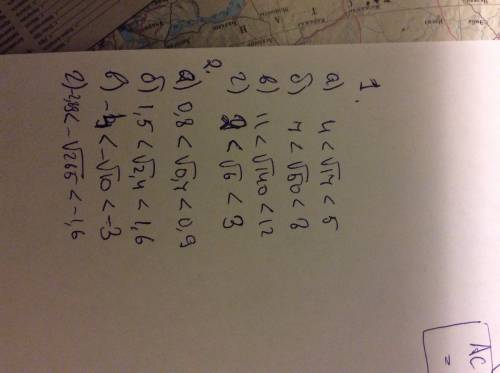 1.
а) 4 < √17 < 5
б) 7 < √60 < 8
в) 11 < √140 < 12
г) 2 < √6 < 3
2.
а) 0,8 < √0,7 < 0,9
б) 1,5 < √2,4 < 1,6
в) -4 < -√10 < -3
г) < -√265 < -1,6
AC
=